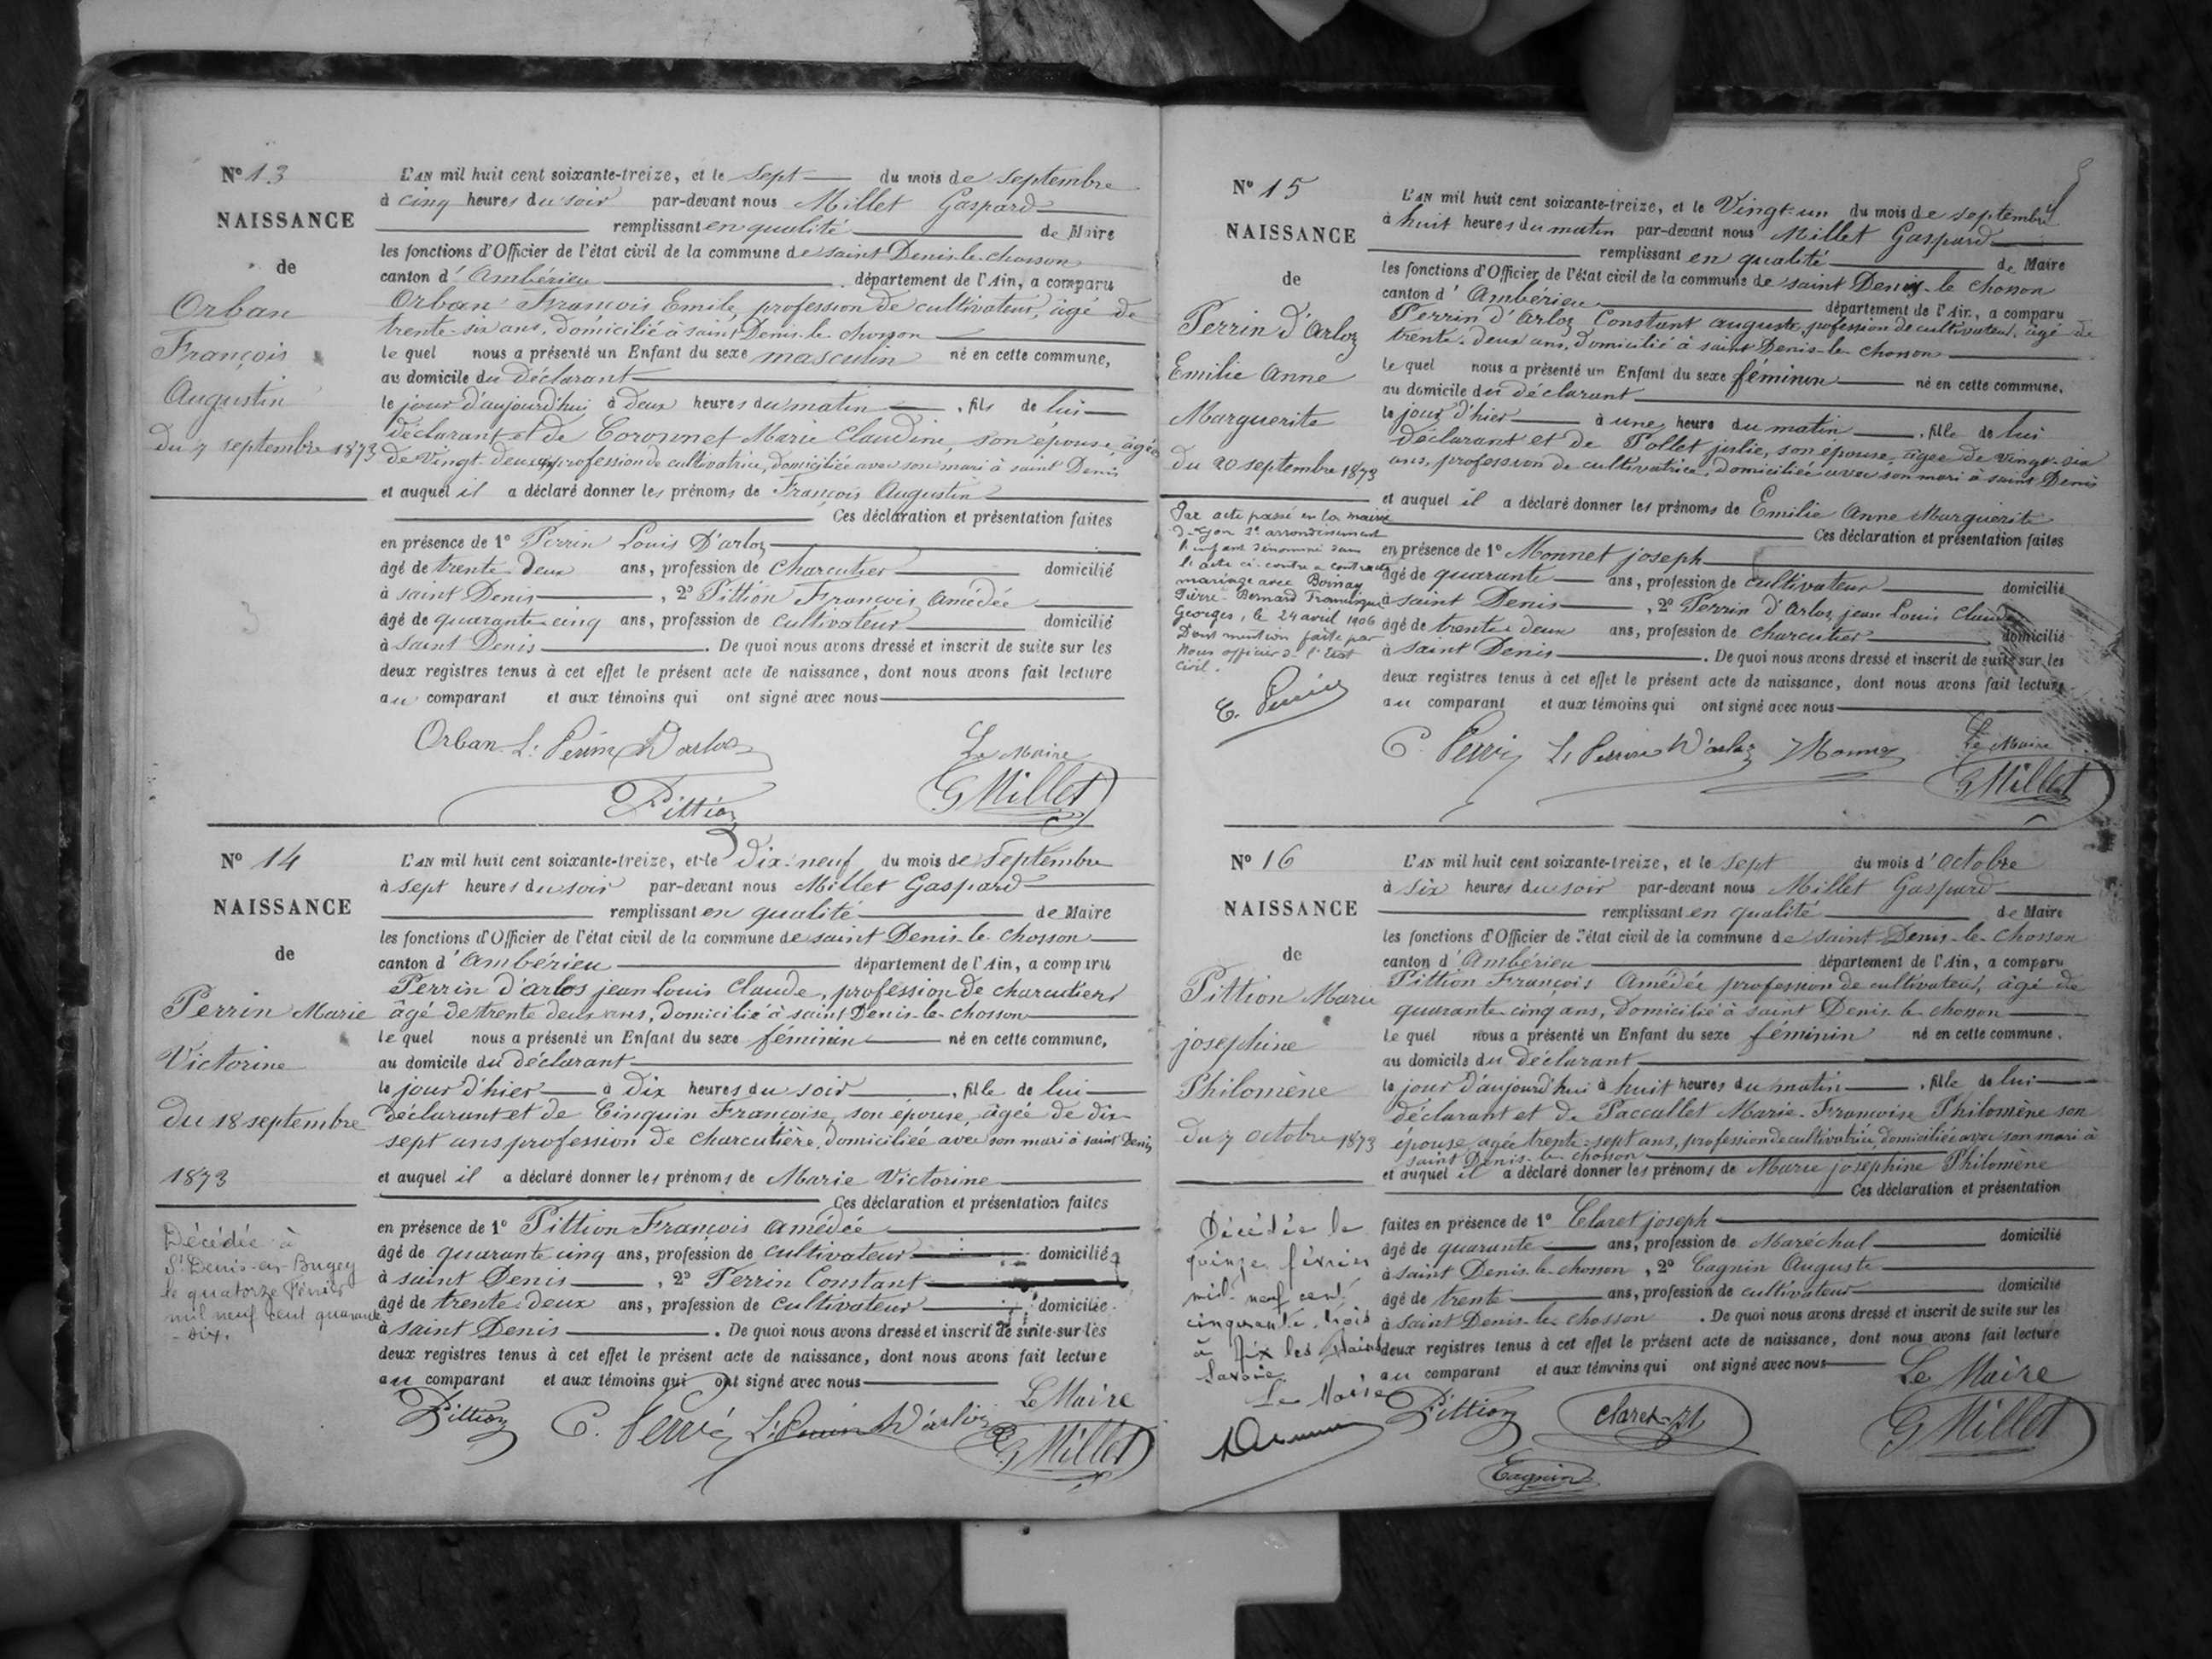 N° 13
NAISSANCE
de
Orban
François
Augustin
du 7 septembre 1873
L'AN mil huit cent soixante-treize, et le sept du mois de septembre
à cinq heures du soir par-devant nous Millet Gaspard
remplissant en qualité de Maire
les fonctions d'Officier de l'état civil de la commune de saint Denis-le-chosson
canton d'Ambérieu département de l'Ain, a comparu
Orban François Emile, profession de cultivateur, âgé de
trente-six ans, domicilié à saint Denis-le chosson
le quel nous a présenté un Enfant du sexe masculin né en cette commune,
au domicile du déclarant
le jour d'aujourd'hui à deux heures du matin, fils de lui
déclarant et de Coronnet Marie Claudine son épouse, âgée
de vingt-deux ans profession de cultivatrice, domiciliée avec son mari à saint Denis
et auquel il a déclaré donner les prénoms de François Augustin
Ces déclaration et présentation faites
en présence de 1° Perrin Louis D'arloz
âgé de trente deux ans, profession de charcutier domicilié
à saint Denis, 2° Pittion François Amédée
âgé de quarante-cinq ans, profession de cultivateur domicilié
à saint Denis. De quoi nous avons dressé et inscrit de suite sur les
deux registres tenus à cet effet le présent acte de naissance, dont nous avons fait lecture
au comparant et aux témoins qui ont signé avec nous
Orban L. Perrin D'arloz Le Maire
Pittion G Millet
N° 14
NAISSANCE
de
Perrin Marie
Victorine
du 18 septembre
1873
Décédée à
St Denis-en-Bugey
le quatorze Février
mil neuf cent quarante
-dix.
L'AN mil huit cent soixante-treize, et le Dix-neuf du mois de septembre
à sept heures du soir par-devant nous Millet Gaspard
remplissant en qualité de Maire
les fonctions d'Officier de l'état civil de la commune de saint Denis-le chosson
canton d'Ambérieu département de l'Ain, a comparu
Perrin d'arlos jean Louis Claude, profession de charcutier
âgé de trente deux ans, domicilié à saint Denis-le-chosson
le quel nous a présenté un Enfant du sexe féminin né en cette commune,
au domicile du déclarant
le jour d'hier à Dix heures du soir, fille de lui
déclarant et de Cinquin Françoise, son épouse, âgée de dix-
sept ans profession de charcutière, domiciliée avec son mari à saint Denis
et auquel il a déclaré donner les prénoms de Marie Victorine
Ces déclaration et présentation faites
en présence de 1° Pittion François Amédée
âgé de quarante cinq ans, profession de cultivateur domicilié
à saint Denis, 2° Perrin Constant
âgé de trente-deux ans, profession de cultivateur domicilié
à saint Denis. De quoi nous avons dressé et inscrit de suite sur les
deux registres tenus à cet effet le présent acte de naissance, dont nous avons fait lecture
au comparant et aux témoins qui ont signé avec nous
Le Maire
Pittion C. Perrin L. Perrin D'arloz G Millet
N° 15
NAISSANCE
de
Perrin d'Arloz
Emilie Anne
Marguerite
du 20 septembre 1873
Par acte passé en la mairie
de Lyon 3e arrondissement
l'enfant dénommé dans
l'acte ci-contre a contracté
mariage avec Boinay
Pierre-Bernard
Georges, le 24 avril 1906
Dont mention faite par
nous officier de l'Etat
civil.
L'AN mil huit cent soixante-treize, et le Vingt-un du mois de septembre
à huit heures du matin par-devant nous Millet Gaspard
remplissant en qualité de Maire
les fonctions d'Officier de l'état civil de la commune de saint Denis-le chosson
canton d'Ambérieu département de l'Ain, a comparu
Perrin d'Arloz Constant auguste, profession de cultivateur, âgé de
trente-deux ans, domicilié à saint Denis-le-chosson
le quel nous a présenté un Enfant du sexe féminin né en cette commune.
au domicile du déclarant
le jour d'hier à une heure du matin, fille de lui
déclarant et de Pollet julie, son épouse, âgée de vingt-six
ans, profession de cultivatrice, domiciliée avec son mari à saint Denis
et auquel il a déclaré donner les prénoms de Emilie Anne Marguerite
Ces déclaration et présentation faites
en présence de 1° Monnet joseph
âgé de quarante ans, profession de cultivateur domicilié
à saint Denis, 2° Perrin d'Arloz jean Louis Claude
âgé de trente deux ans, profession de charcutier domicilié
à saint Denis. De quoi nous avons dressé et inscrit de suite sur les
deux registres tenus à cet effet le présent acte de naissance, dont nous avons fait lecture
au comparant et aux témoins qui ont signé avec nous
C. Perrin L. Perrin D'arloz Monnet Le Maire
G Millet
N° 16
NAISSANCE
de
Pittion Marie
josephine
Philomène
du 7 octobre 1873
Décédée le
quinze février
mil-neuf cent
cinquante-trois
à Aix les Bains
Savoie
Le Maire
L'AN mil huit cent soixante-treize, et le sept du mois d'octobre
à six heures du soir par-devant nous Millet Gaspard
remplissant en qualité de Maire
les fonctions d'Officier de l'état civil de la commune de saint Denis-le-chosson
canton d'Ambérieu département de l'Ain, a comparu
Pittion François Amédée profession de cultivateur, âgé de
quarante-cinq ans, domicilié à saint Denis-le-chosson
le quel nous a présenté un Enfant du sexe féminin né en cette commune.
au domicile du déclarant
le jour d'aujourd'hui à huit heures du matin, fille de lui
déclarant et de Paccallet Marie-Françoise Philomène son
épouse, âgée trente-sept ans, profession de cultivatrice, domiciliée avec son mari à
saint Denis-le-chosson
et auquel il a déclaré donner les prénoms de Marie josephine Philomène
Ces déclaration et présentation
faites en présence de 1° Claret joseph
âgé de quarante ans, profession de Maréchal domicilié
à saint Denis-le-chosson, 2° Cagnin Auguste
âgé de trente ans, profession de cultivateur domicilié
à saint Denis-le-chosson. De quoi nous avons dressé et inscrit de suite sur les
deux registres tenus à cet effet le présent acte de naissance, dont nous avons fait lecture
au comparant et aux témoins qui ont signé avec nous
Le Maire
Pittion Claret G Millet
Cagnin